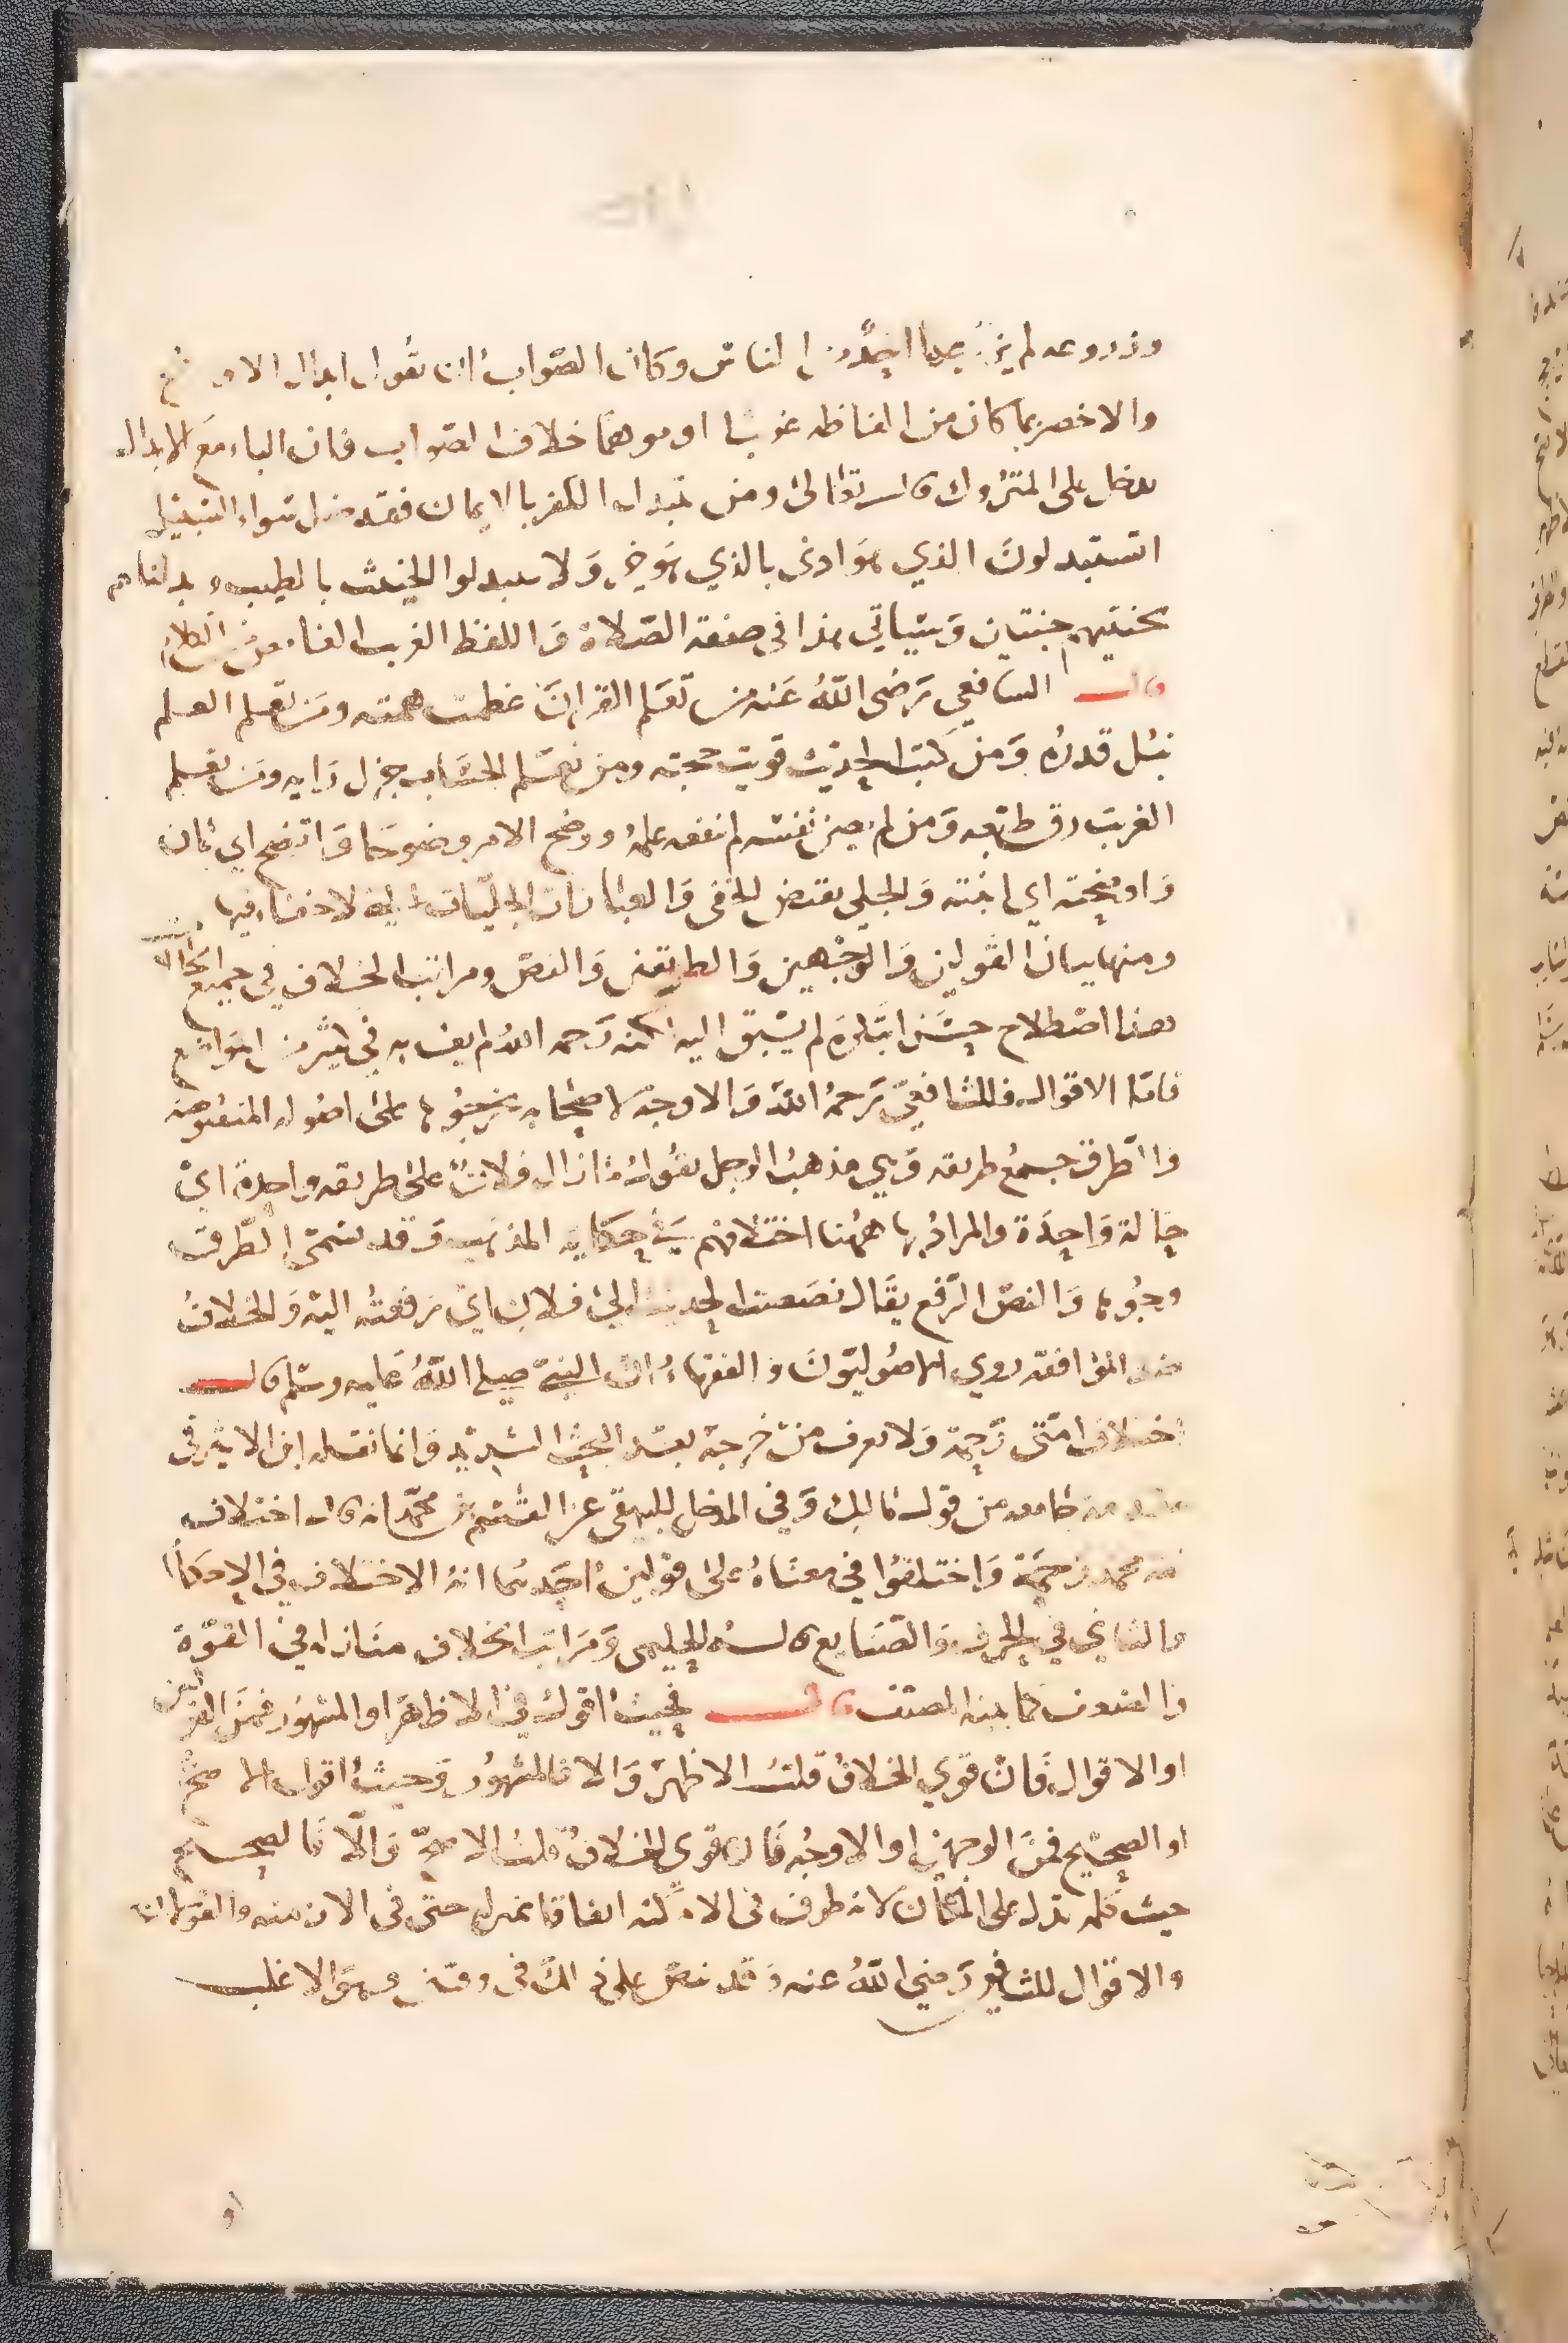 وزروعه لم يزد عليها احد من الناس وكان الصواب ان يقول ابدال الاوضح
والاخصر بما كان من الفاظه غريبا او موهما خلاف الصواب فان الباء مع الابدال
تدخل على المتروك قال تعالى ومن يتبدل الكفر بالايمان فقد ضل سواء السبيل
اتستبدلون الذي هو ادنى بالذي هو خير ولا تتبدلوا الخبيث بالطيب وبدلناهم
بجنتيهم جنتين وسياتي هذا في صفة الصلاة واللفظ الغريب
قال الشافعي رضي الله عنه من تعلم القران عظمت همته ومن تعلم العلم
نبل قدره ومن كتب الحديث قويت حجته ومن تعلم الحساب جزل رايه ومن تعلم
الغريب رق طبعه ومن لم يصن نفسه لم ينفعه علمه ووضح الامر وضوحا واتضح اي بان
واوضحته اي ابنته والجلي نقيض الخفي والعبارات الجليات التي لا خفاء فيها
ومنها بيان القولين والوجهين والطريقين والنص ومراتب الخلاف في جميع الحالات
هذا اصطلاح حسن ابتكره لم يسبق اليه لكنه رحمه الله لم يف به في كثير من المواضع
فاما الاقوال فللشافعي رحمه الله والاوجه لاصحابه يخرجونها على اصوله المنصوصة
والطرق جمع طريقه وهي مذهب الرجل يقول ما زال فلان على طريقه واحدة اي
حالة واحدة والمراد بها ههنا اختلافهم في حكاية المذهب وقد تسمى الطرق
وجوها والنص الرفع يقال نصصت الحديث الى فلان اي رفعته اليه والخلاف
ضد الموافقه روي الاصوليون والفقهاء ان النبي صلى الله عليه وسلم قال
اختلاف امتي رحمة ولا يعرف من خرجه بعد البحث الشديد وانما نقله ابن الاثير في
مقدمة جامعه من قول مالك وفي المدخل للبيهقي عن القسم بن محمد انه قال اختلاف
امة محمد رحمة واختلفوا في معناه على قولين احدهما انه الاختلاف في الاحكام
والثاني في الحرف والصنايع قاله الحليمي ومراتب الخلاف منازله في القوة
والضعف كما بينه المصنف قال فحيث اقول في الاظهر او المشهور فمن القولين
او الاقوال فان قوي الخلاف قلت الاظهر والا فالمشهور وحيث اقول الاصح
او الصحيح فمن الوجهين او الاوجه فان قوي الخلاف قلت الاصح والا فالصحيح
حيث كلمه تدل على المكان لانه ظرف في الامكنه اتفاقا بمنزله حتى في الازمنه والقولان
والاقوال للشافعي رضي الله عنه وقد نص على ذلك في وقتين وهو الاغلب
او